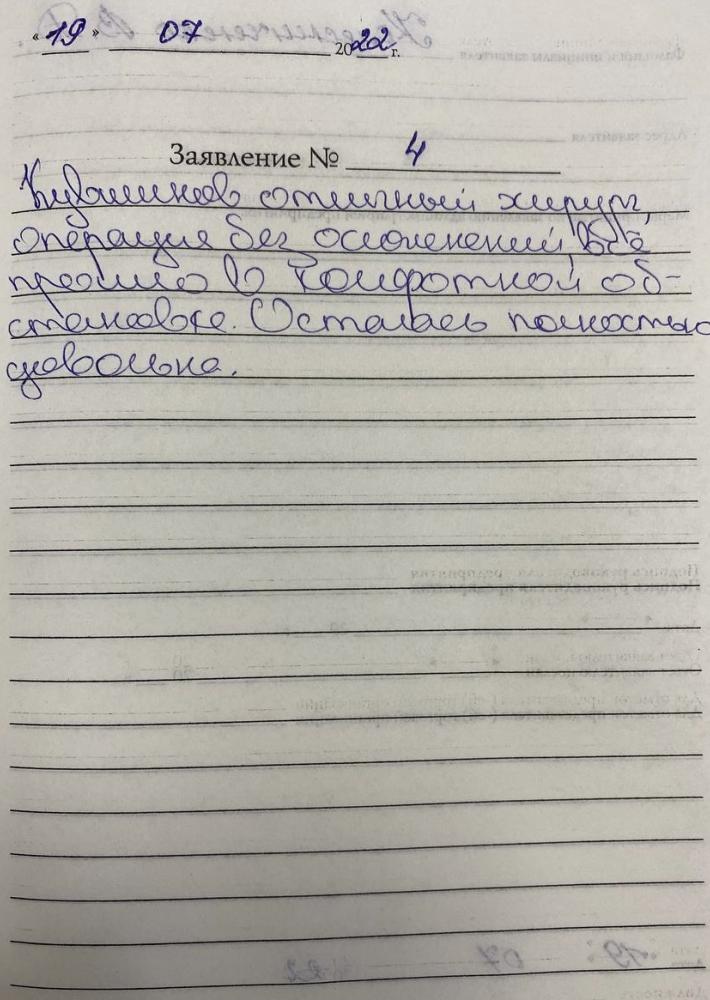 « 19 » 07 2022 г.
Заявление № 4
Кувашинов отличный хирург,
операция без осложнений, всё
прошло в комфотной об-
становке. Осталась полностью
довольна.